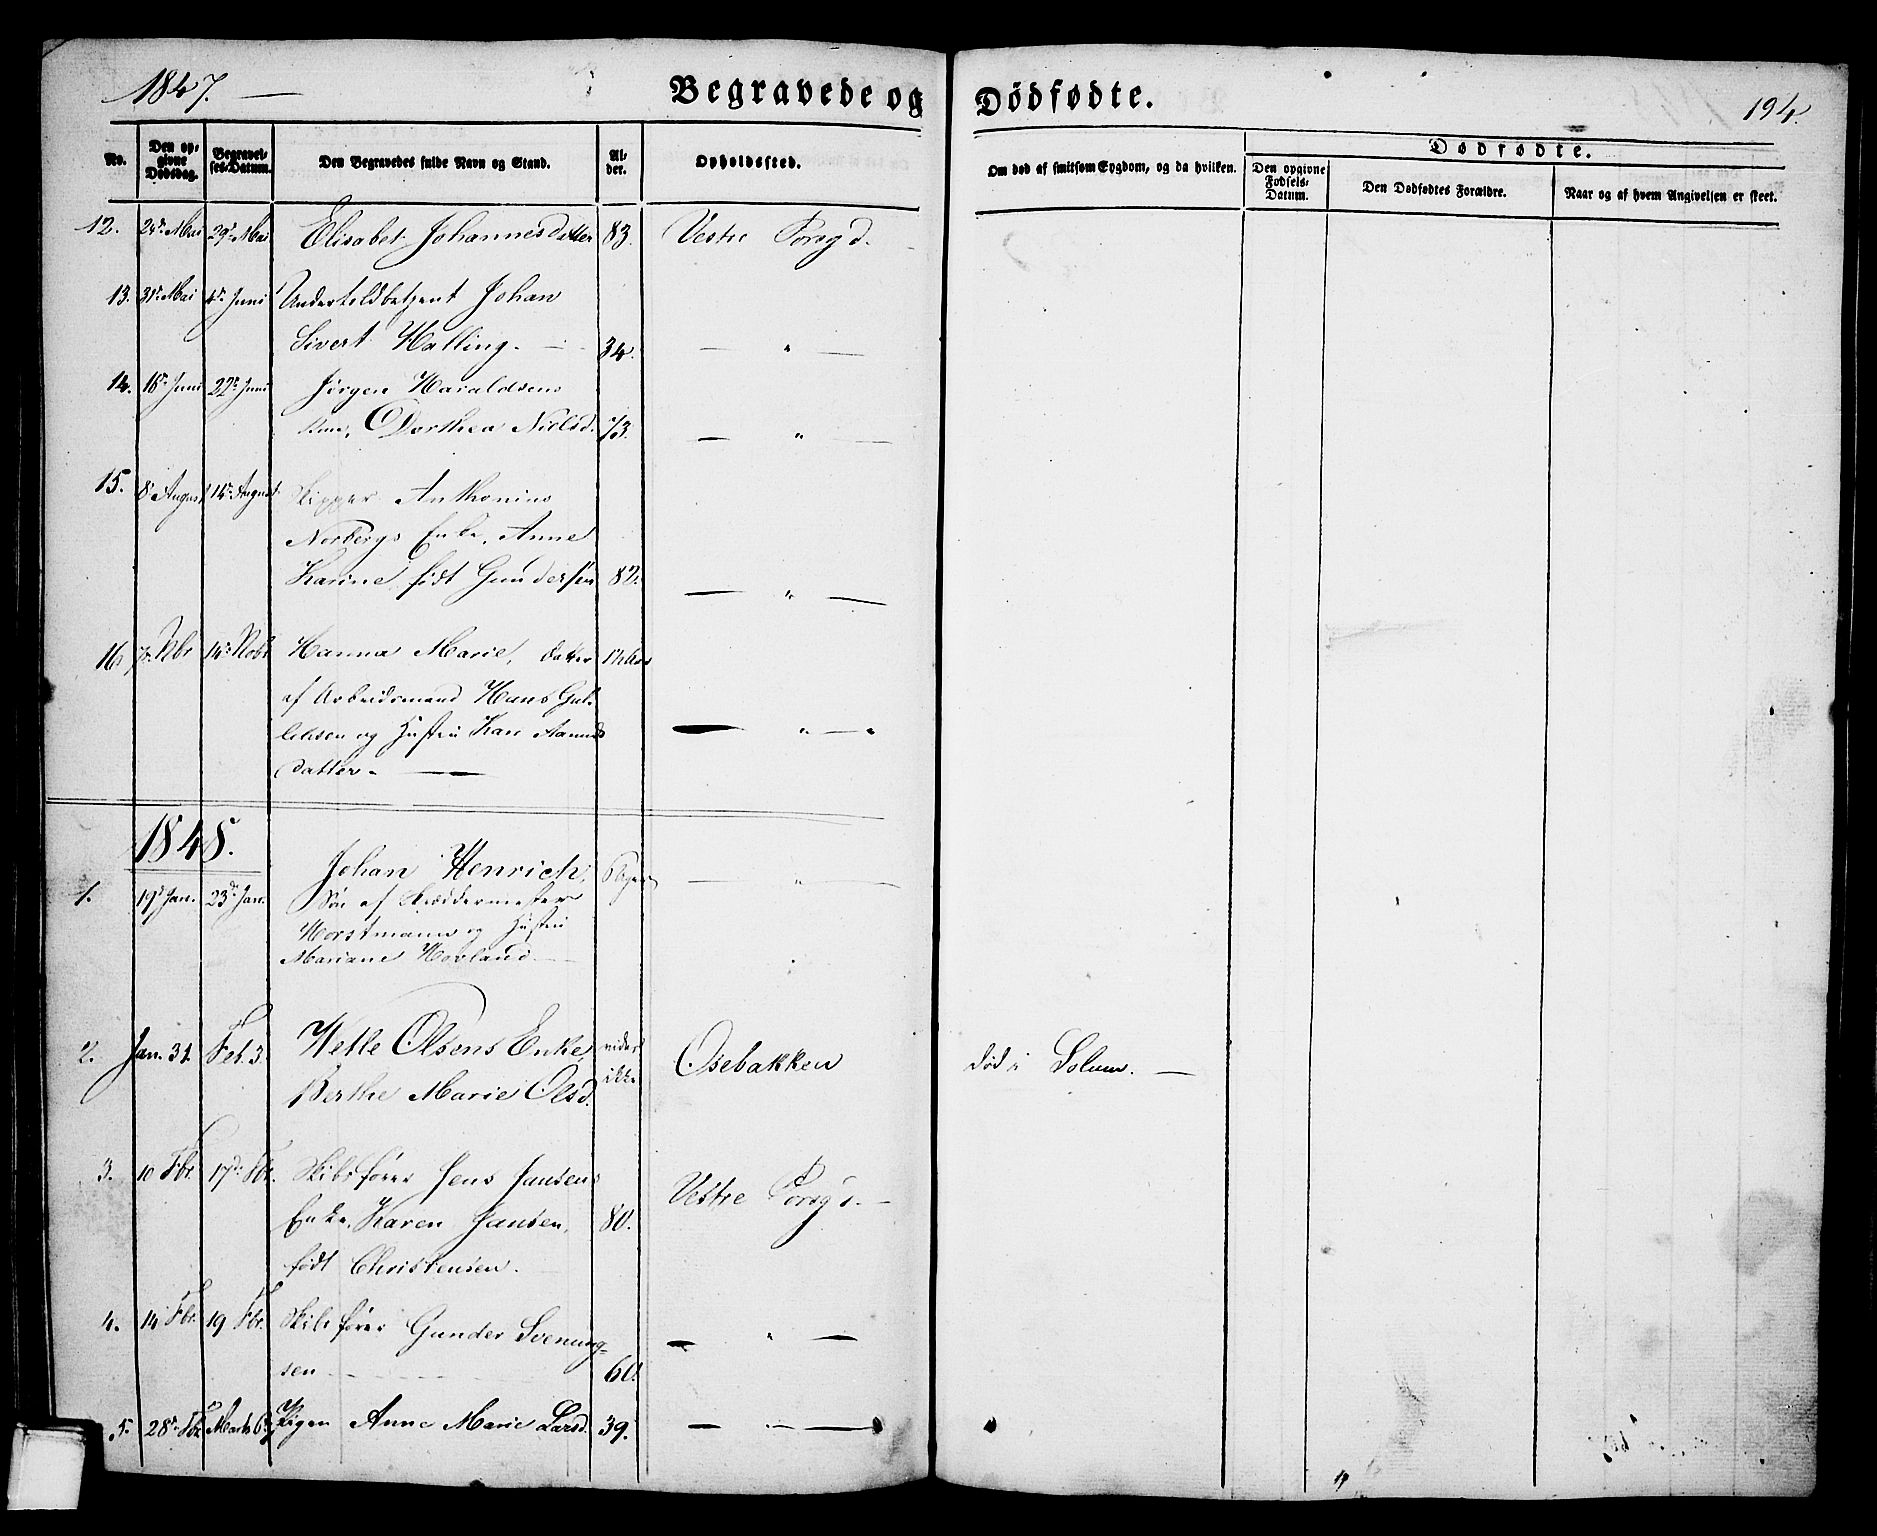 1847. Begravede og Dødfødte. 194.
No. Den opgivne Dødsdag. Begravelses-Datum. Den Begravedes fulde Navn og Stand. Alder. Opholdssted. Om død af smitsom Sygdom, og da hvilken. Dødfødte.
Den opgivne Fødsels-Datum. Den Dødfødtes Forældre. Naar og af hvem Angivelsen er skeet.
12. 24de Mai 29de Mai Elisabet Johannesdatter 83. Vestre Porsg'd.
13. 31te Mai 4de Juni Undertoldbetjent Johan
Sivert Halling. — 34. — " —
14. 16de Juni 22de Juni Jørgen Haraldsens
Dorthea Nielsd. 73. — " —
15. 8 August 14de August Skipper Anthonius
Norbergs Enke, Anne
Karine født Gundersen 82. — " —
16. 7de Nbr 14de Novbr Hanna Marie, datter
af Arbeidsmand Hans Gul-
liksen og Hustru Kari Aamunds
datter. — — " — "
1848.
1. 19de Jan. 23de Jan. Johan Henrich, — " —
Søn af Skræddermester
Horstmann og Hustru
Mariane Hovland —
2. Jan. 31. Feb. 3. Wetle Olsens Enke, vides Osebakken død i Solum. —
Berthe Marie Olsd. ikke
3. 10 Fbr. 17de Fbr. Skibsfører Jens Jansens Vestre Porsg'd. —
Enke, Karen Jansen, 80.
født Christensen.
4. 14 Fbr. 19 Fbr. Skibsfører Gunder Svenung- — " —
sen 60.
5. 28de Fbr Marts 6te Pigen Anne Marie Larsd. 39. — " —